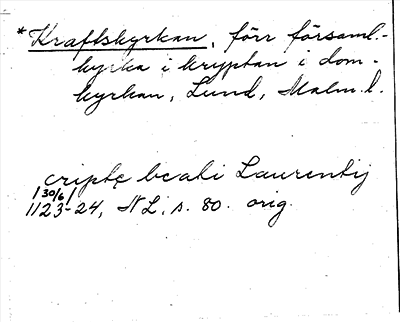 *Kraftskyrkan, förr församl.-
kyrka i kryptan i dom-
kyrkan, Lund, Malm. l.
criptę beati Laurentij
/30/6/
1123-24, NL, s. 80. orig.